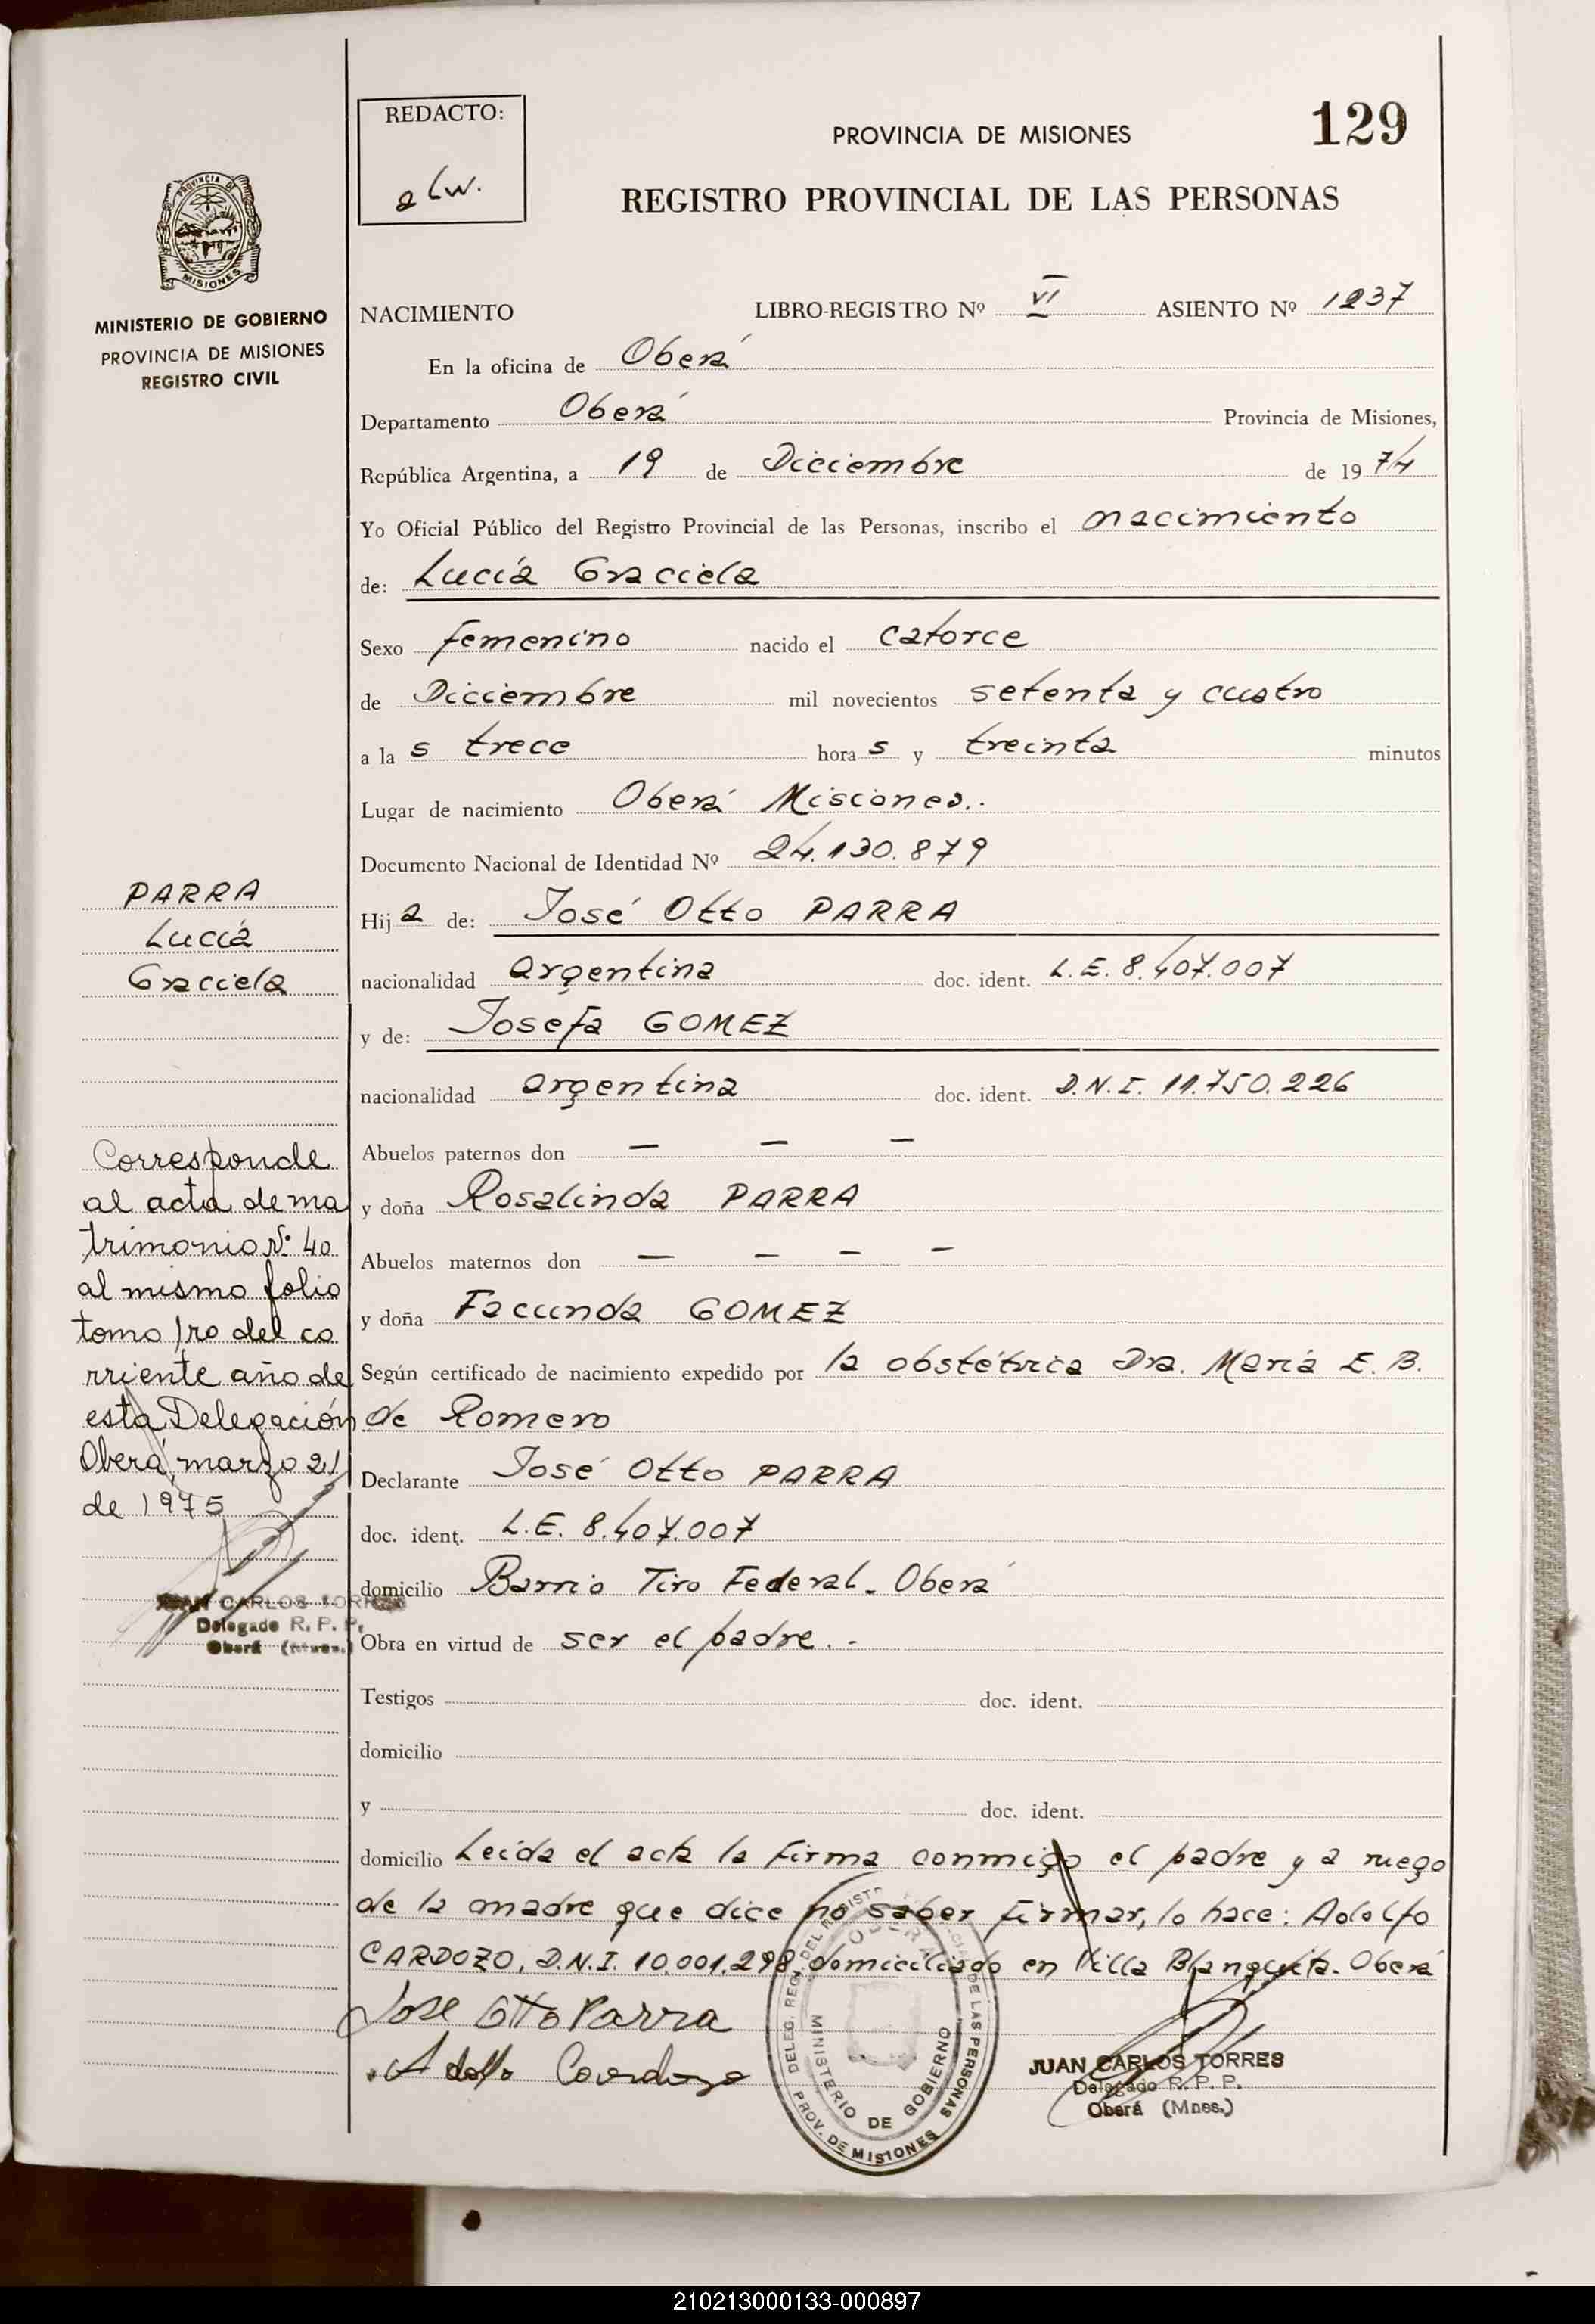 REDACTO:
129
PROVINCIA DE MISIONES
REGISTRO PROVINCIAL DE LAS PERSONAS
PROVINCIA DE
MISIONES
MINISTERIO DE GOBIERNO
PROVINCIA DE MISIONES
REGISTRO CIVIL
NACIMIENTO LIBRO-REGISTRO Nº VI ASIENTO Nº 1237
En la oficina de Oberá
Departamento Oberá Provincia de Misiones,
República Argentina, a 19 de Diciembre de 1974
Yo Oficial Público del Registro Provincial de las Personas, inscribo el nacimiento
de: Lucía Graciela
Sexo femenino nacido el catorce
de Diciembre mil novecientos setenta y cuatro
a la s trece hora s y treinta minutos
Lugar de nacimiento Oberá Misiones.-
Documento Nacional de Identidad Nº 24.130.879
PARRA
Lucía
Graciela
Hija de: José Otto PARRA
nacionalidad argentina doc. ident. L.E. 8.407.007
y de: Josefa GOMEZ
nacionalidad argentina doc. ident. D.N.I. 11.750.226
Abuelos paternos don — — —
y doña Rosalinda PARRA
Abuelos maternos don — — — —
y doña Facunda GOMEZ
Según certificado de nacimiento expedido por la obstétrica Dra. María E. B.
de Romero
Declarante José Otto PARRA
doc. ident. L.E. 8.407.007
domicilio Barrio Tiro Federal. Oberá
Obra en virtud de ser el padre.-
Testigos doc. ident.
domicilio
y doc. ident.
domicilio Leída el acta la firma conmigo el padre y a ruego
de la madre que dice no saber firmar, lo hace: Adolfo
CARDOZO, D.N.I. 10.001.298, domiciliado en Villa Blanquita. Oberá
Jose Otto Parra
Adolfo Cardozo
Corresponde
al acta de ma
trimonio Nº 40
al mismo folio
tomo 1ro del co
rriente año de
esta Delegación
Oberá, marzo 21
de 1975
JUAN CARLOS TORRES
Delegado R. P. P.
Oberá (Mnes.)
DELEG. REG. DEL REGISTRO DE LAS PERSONAS
OBERA
MINISTERIO DE GOBIERNO
PROV. DE MISIONES
JUAN CARLOS TORRES
Delegado R. P. P.
Oberá (Mnes.)
210213000133-000897